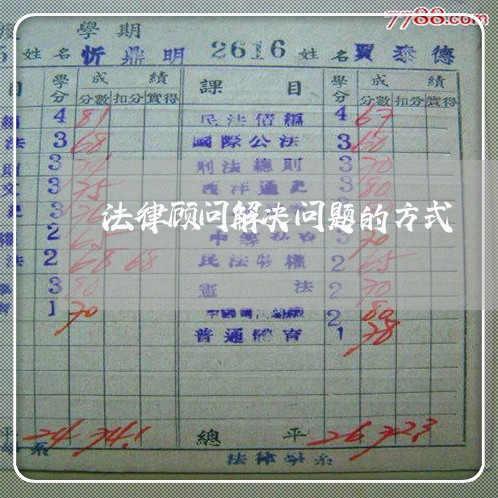 7788.com
學期
姓名 忻鼎明 2616 姓名 賈泰德
目 學分 成績 課目 學分 成績
分數 扣分 實得 分數 扣分 實得
4 81 民法債編 4 67
法 3 68 國際公法 3 60
3 刑法總則 3 70
3 75 西洋通史 3 80
法律顾问解决问题的方式
2 3 70
法 2 68 68 民法物權 2 65
3 80 憲法 2 70
1 70 2 80
普通體育 1 78
平 24 74.1 總平 26 72.3
系 法律學系